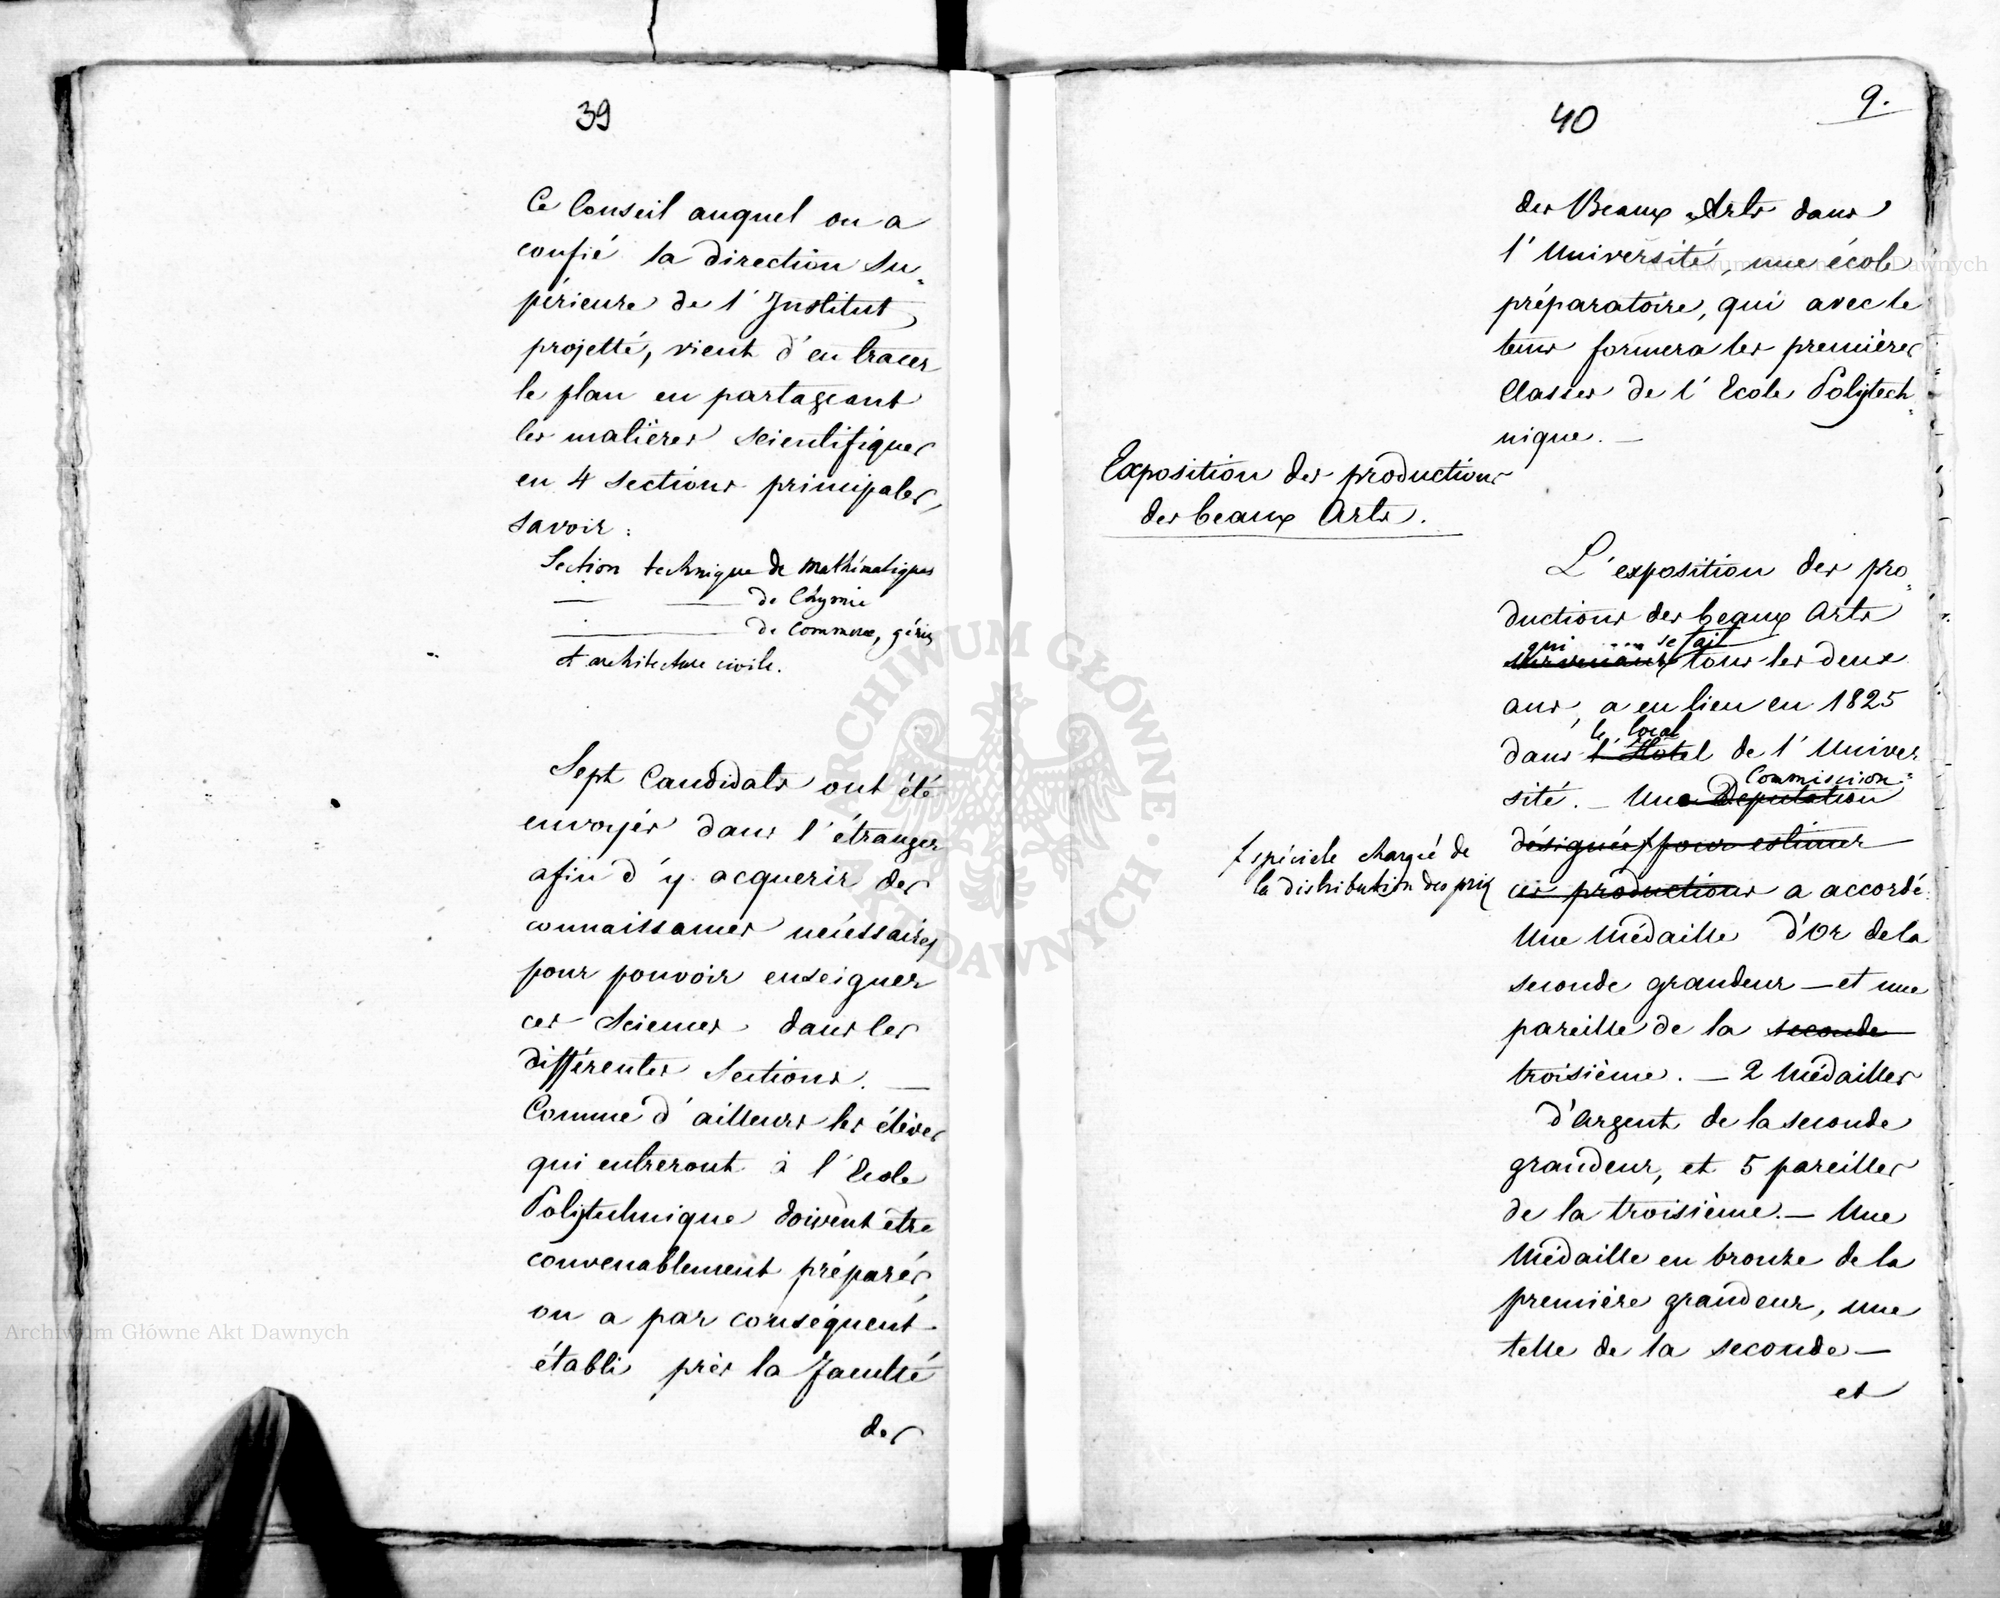 39
Ce Conseil auquel on a
confié la direction su-
périeure de l'Institut
projetté, vient d'en tracer
le plan en partageant
les matières scientifiques
en 4 sections principales,
savoir :
Section technique de Mathématiques
— — de Chymie
— — de Commerce, génie
et architecture civile.
Sept Candidats ont été
envoyés dans l'étranger
afin d'y acquerir des
connaissances nécessaires
pour pouvoir enseigner
ces Sciences dans les
différentes Sections. —
Comme d'ailleurs les élèves
qui entreront à l'Ecole
Polytechnique doivent être
convenablement préparés,
on a par conséquent
établi près la Faculté
des
40
9.
des Beaux Arts dans
l'Université, une école
préparatoire, qui avec le
tems formera les premières
Classes de l'Ecole Polytech-
nique. —
Exposition des productions
des beaux Arts.
L'exposition des pro-
ductions des beaux Arts
qui se fait
tous les deux
ans, a eu lieu en 1825
le local
dans l'Hotel de l'Univer-
Commission
sité. — Une Deputation
désignée pour estimer
spéciale chargé de
la distribution des prix
ces productions a accordé
Une Médaille d'Or de la
seconde grandeur — et une
pareille de la seconde
troisième. — 2 Médailles
d'Argent de la seconde
grandeur, et 5 pareilles
de la troisième. — Une
Médaille en bronze de la
première grandeur, une
telle de la seconde —
et
Archiwum Główne Akt Dawnych
Archiwum Główne Akt Dawnych
ARCHIWUM GŁÓWNE AKT DAWNYCH